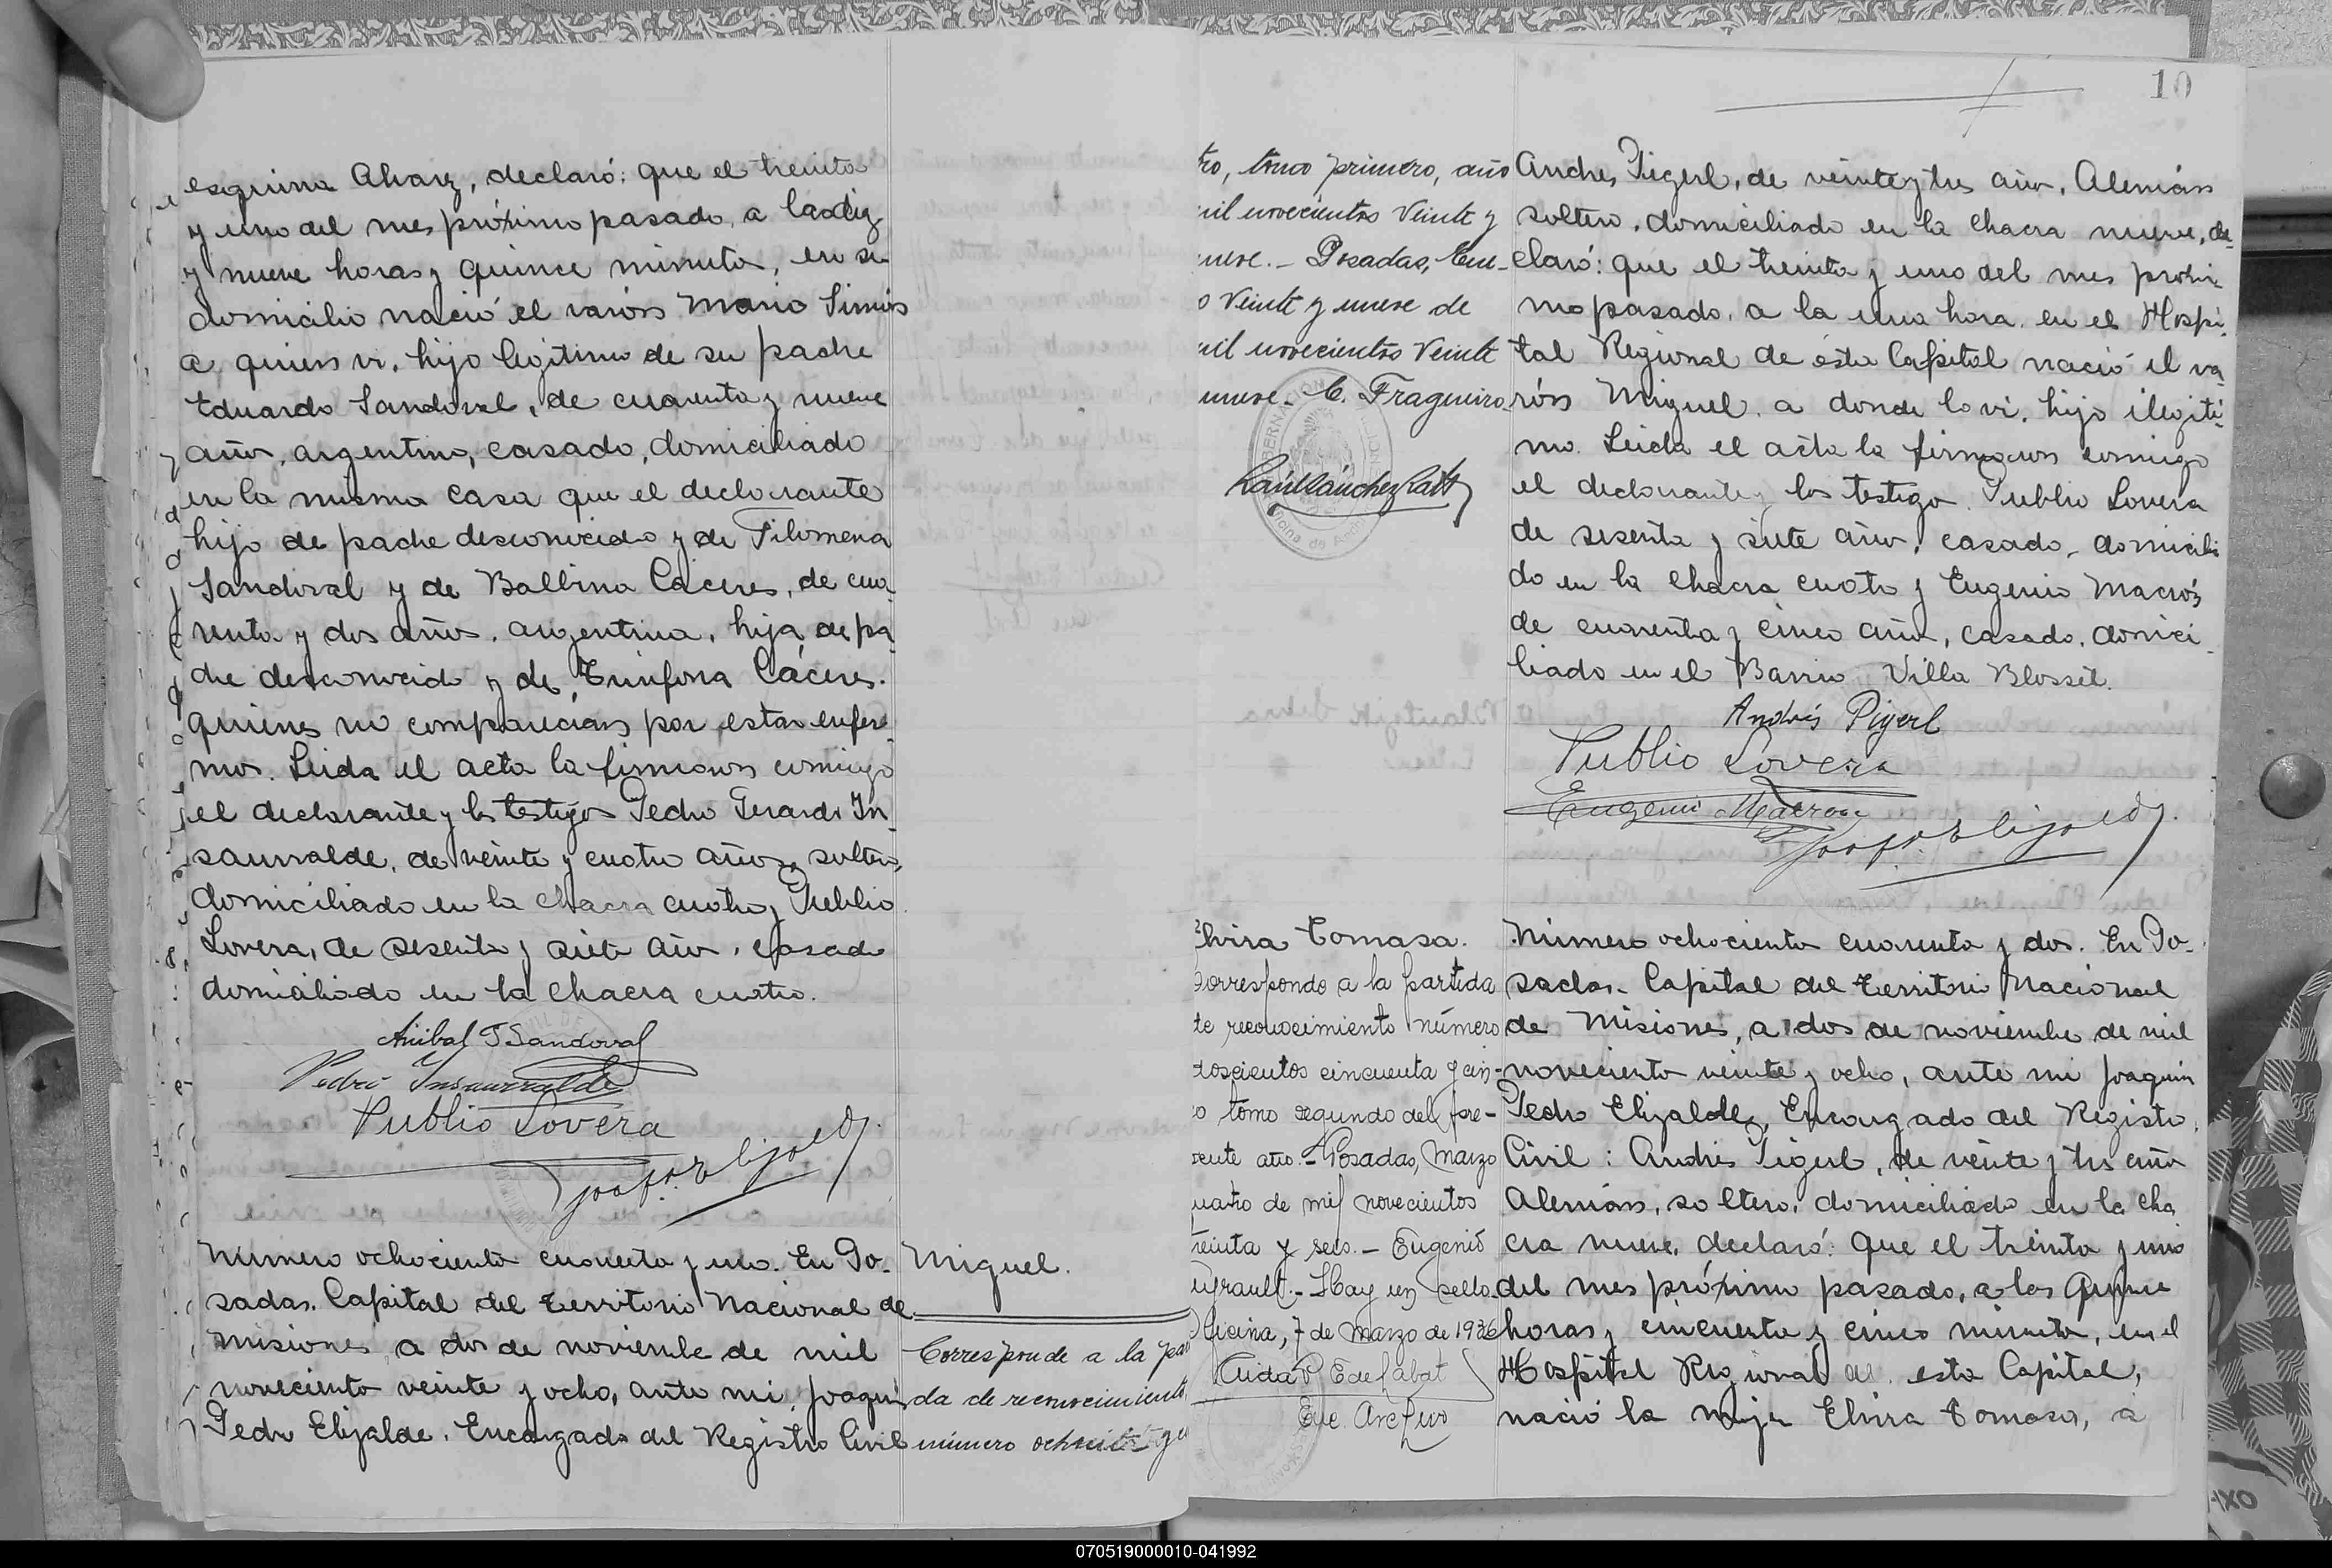 esquina Alvarez, declaró: que el treinta
y uno del mes próximo pasado, a las diez
y nueve horas y quince minutos, en su
domicilio nació el varón Mario Simón
a quien vi, hijo legitimo de su padre
Eduardo Sandoval, de cuarenta y nueve
años, argentino, casado, domiciliado
en la misma casa que el declarante
hijo de padre desconocido y de Filomena
Sandoval y de Balbina Cáceres, de cua-
renta y dos años, argentina, hija de pa-
dre desconocido y de Cáceres.
quienes no comparecían por estar enfer-
mos. Leida el acta la firmaron conmigo
el declarante y los testigos Pedro Gerardo In-
saurralde, de veinte y cuatro años, soltero,
domiciliado en la chacra cuatro y Publio
Lovera, de sesenta y siete años, casado
domiciliado en la chacra cuatro.
Anibal T Sandoval
Pedro Insaurralde
Publio Lovera
Número ochocientos cuarenta y uno. En Po-
sadas, Capital del Territorio Nacional de
Misiones a dos de noviembre de mil
novecientos veinte y ocho, ante mi, Joaquin
Pedro Elizalde, Encargado del Registro Civil
Miguel.
Corresponde a la par
da de reconocimiento
número
10
tro, tomo primero, año
mil novecientos veinte y
nueve.- Posadas, Ene-
o veinte y nueve de
mil novecientos veinte
nueve.- C. Fragueiro
Andres Pigerl, de veinte y tres años, Alemán
soltero, domiciliado en la chacra nueve, de-
claró: que el treinta y uno del mes próxi-
mo pasado, a la una hora, en el Hospi-
tal Regional de ésta Capital nació el va-
rón Miguel, a donde lo vi, hijo ilegiti-
mo. Leida el acta la firmaron conmigo
el declarante y los testigos Publio Lovera
de sesenta y siete años, casado, domicilia
do en la chacra cuatro y Eugenio Macrón
de cuarenta y cinco años, casado, domici-
liado en el Barrio Villa Blosset.
Andrés Pigerl
Publio Lovera
Eugenio Macron
Elvira Tomasa.
Corresponde a la partida
de reconocimiento número
doscientos cincuenta y cin-
co tomo segundo del pre-
sente año.- Posadas, Marzo
cuatro de mil novecientos
treinta y seis.- Eugenio
Hay un sello.
Oficina, 7 de Marzo de 1936
Enc. Archivo
Número ochocientos cuarenta y dos. En Po-
sadas, Capital del Territorio Nacional
de Misiones, a dos de noviembre de mil
novecientos veinte y ocho, ante mi Joaquin
Pedro Elizalde, Encargado del Registro
Civil: Andrés Pigerl, de veinte y tres años
Alemán, soltero, domiciliado en la cha
cra nueve, declaró: que el treinta y uno
del mes próximo pasado, a las quince
horas y cincuenta y cinco minutos, en el
Hospital Regional de esta Capital,
nació la mujer Elvira Tomasa, a
070519000010-041992